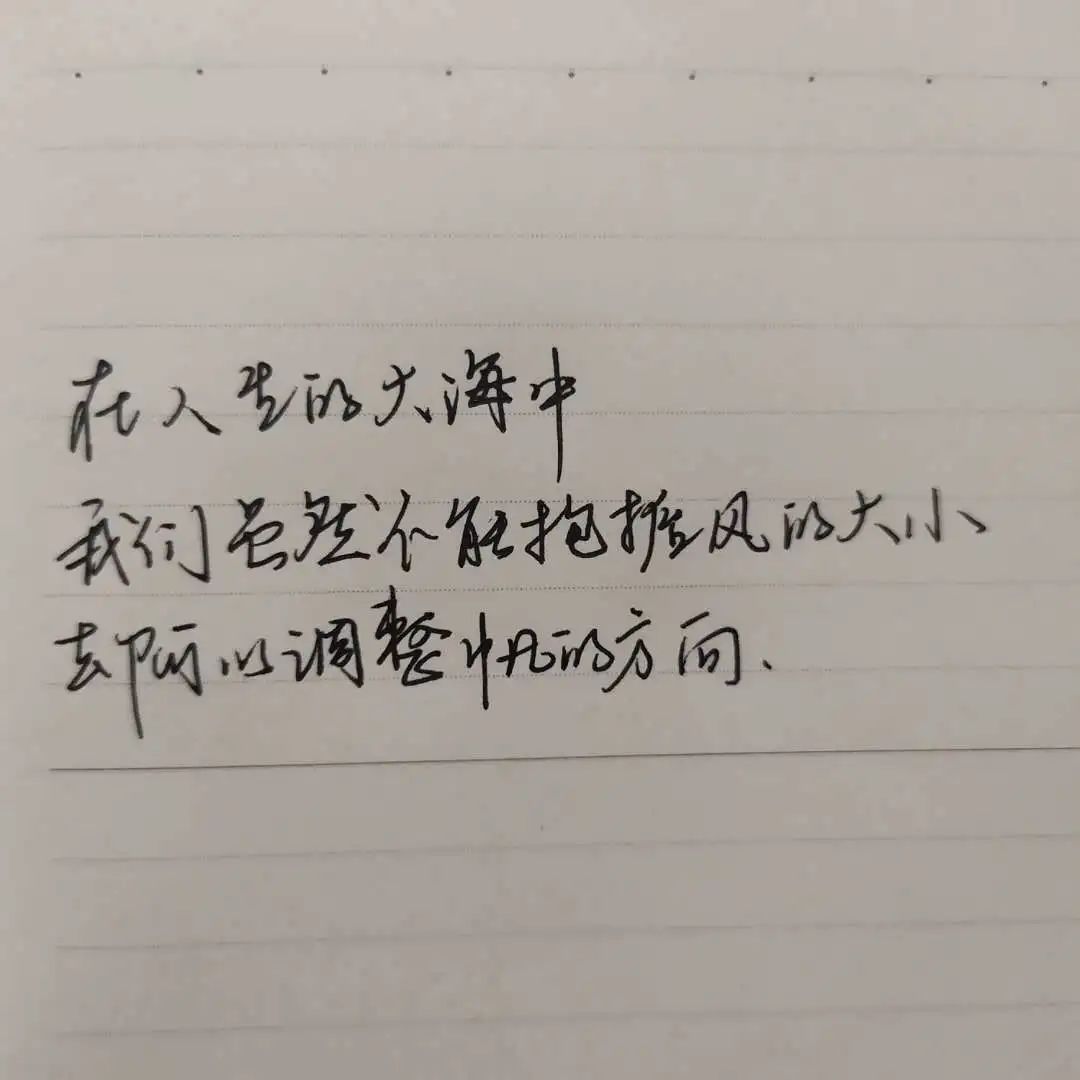 在人生的大海中
我们虽然不能把握风的大小
却可以调整帆的方向.